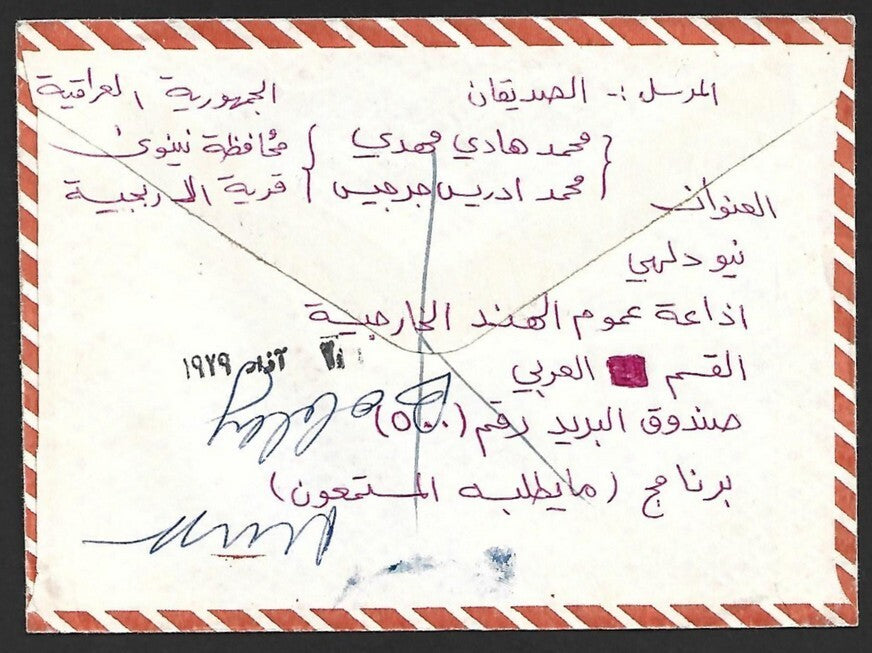 المرسل :- الصديقان
الجمهورية العراقية
{ محمد هادي مهدي } محافظة نينوى
{ محمد ادريس جرجيس } قرية
العنوان
نيو دلهي
اذاعة عموم الهند الخارجية
القسم العربي
آذار ١٩٧٩
صندوق البريد رقم (٥٠٠)
برنامج (ما يطلبه المستمعون)